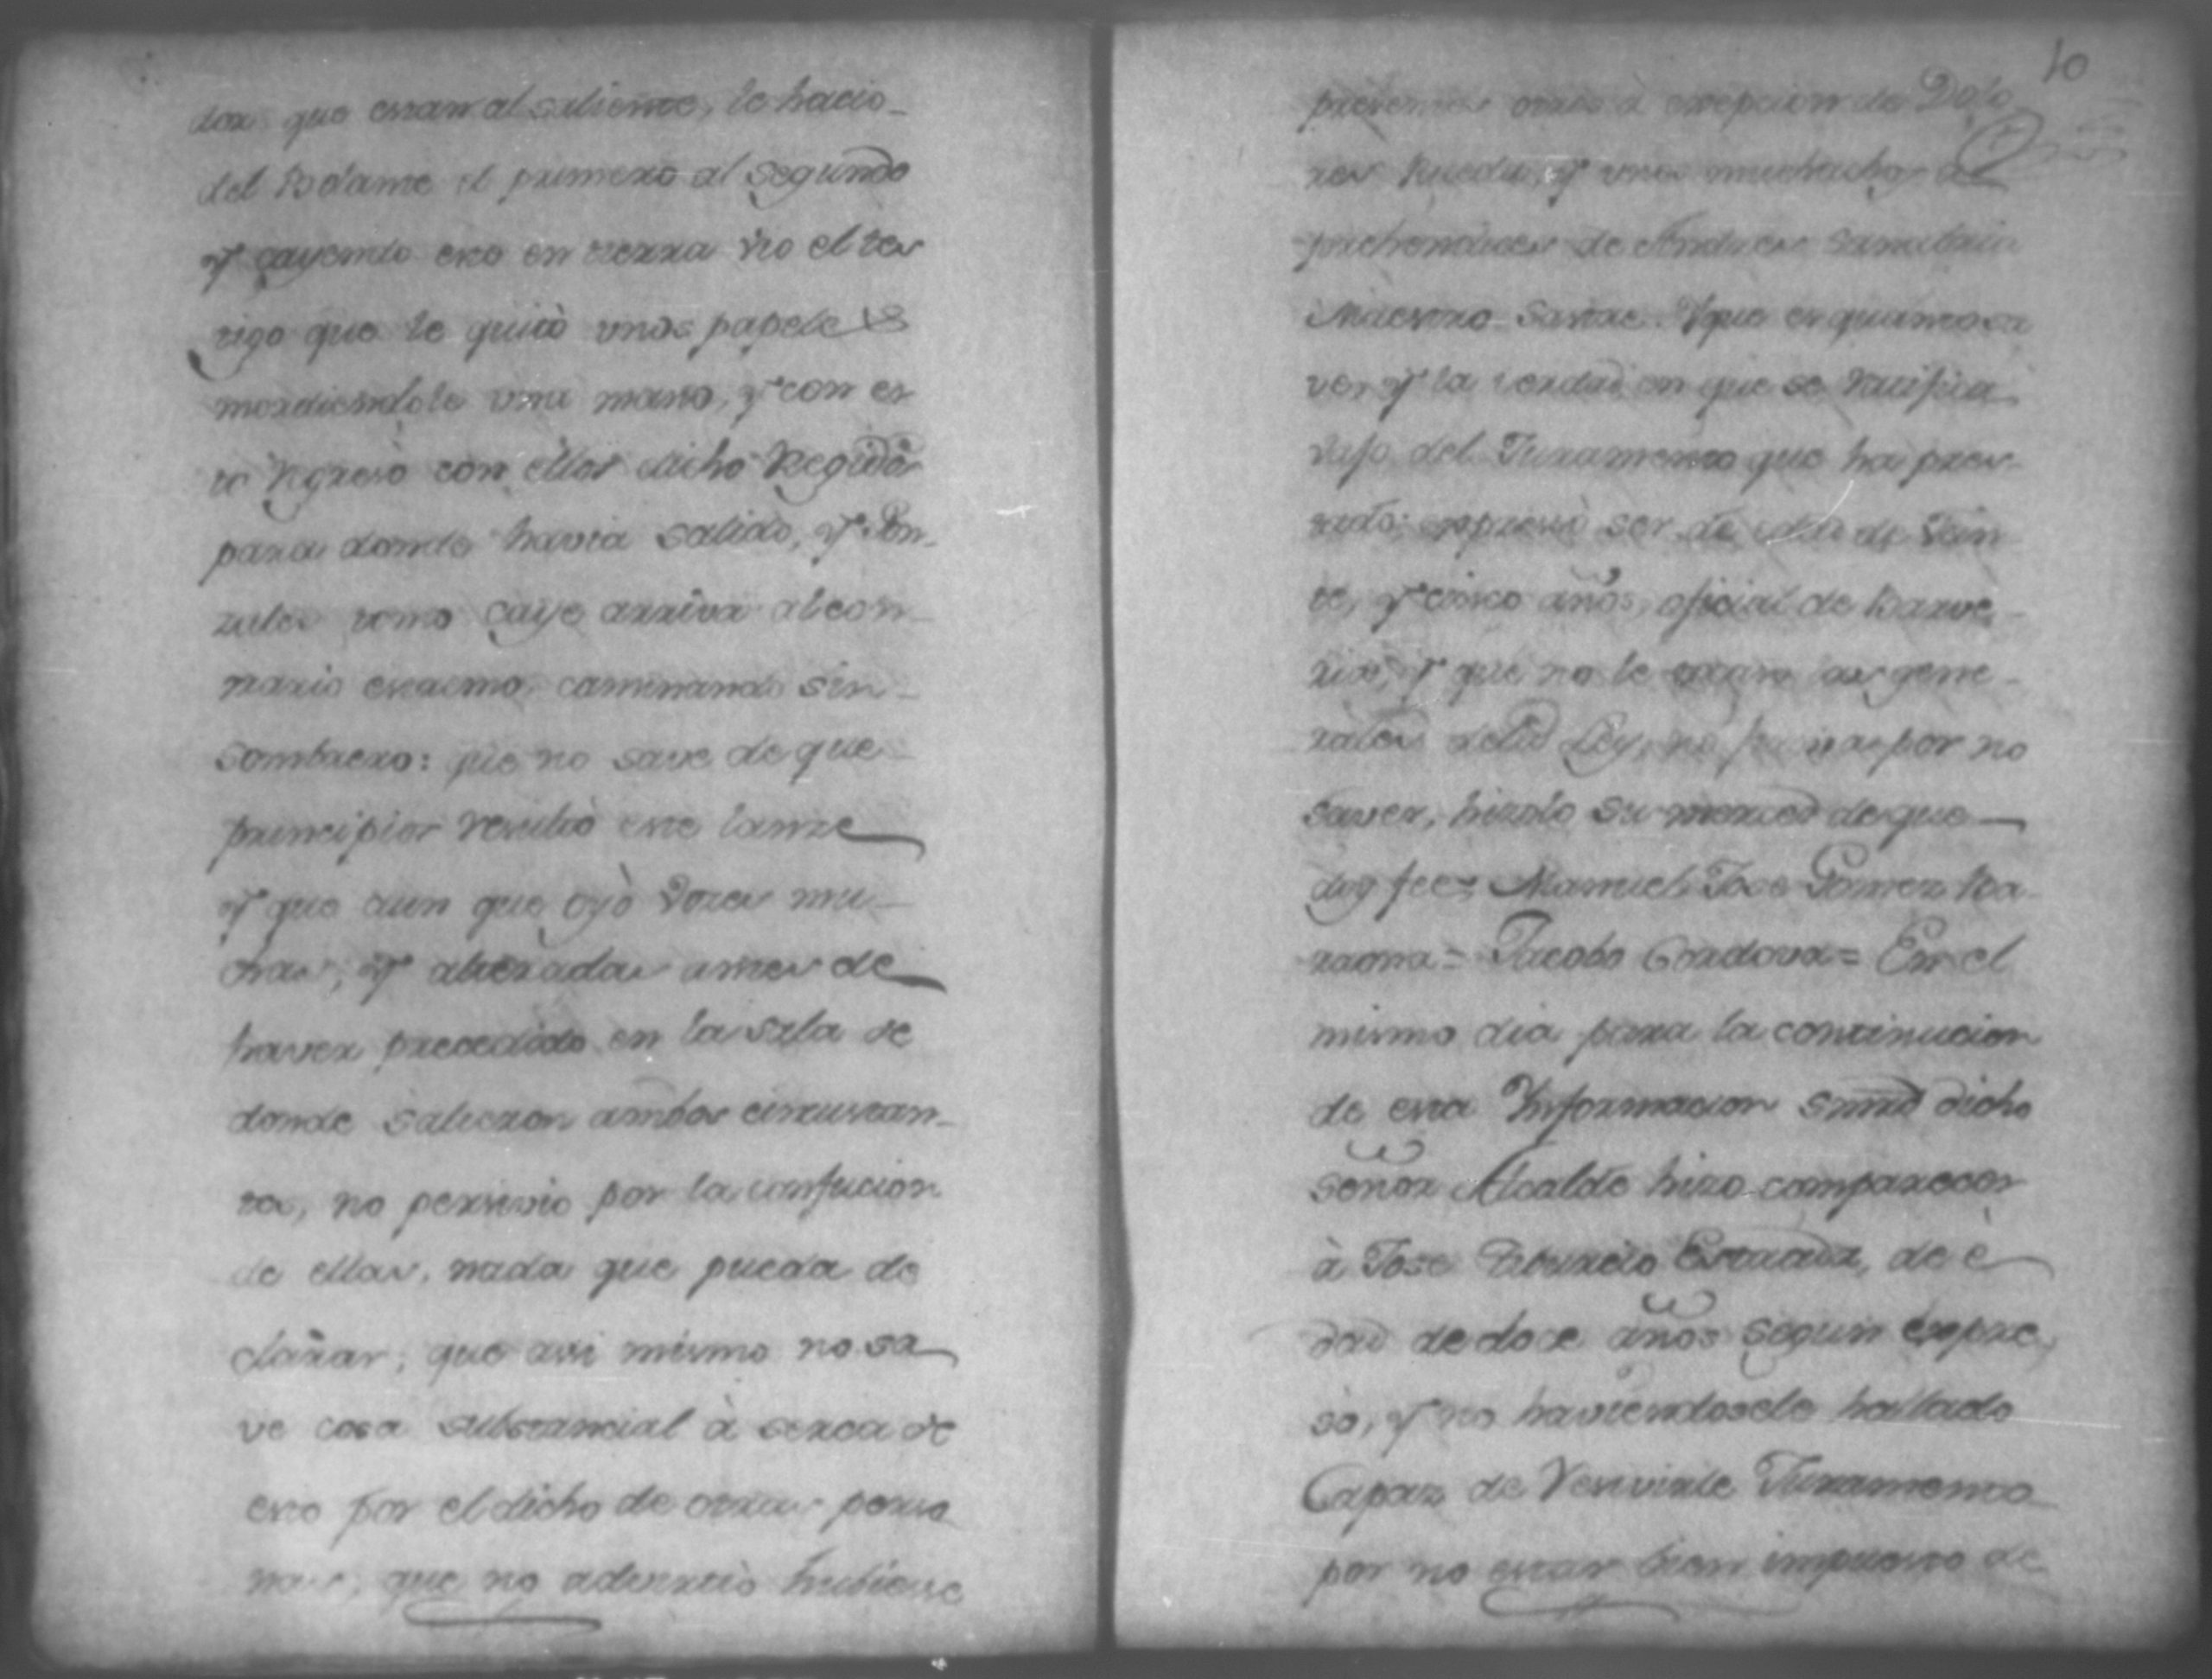 dor que estan al saliente, le hacio
del Volante el primero al segundo
y cayendo esto en tierra vio el tes
tigo que le quitò unos papeles
mordiendole una mano, y con es
to regresò con ellos dicho Regidor
para donde havia salido, y Gon
zales tomo caye arriva al con
trario extremo caminando sin
sombrero: que no save de que
principios resultò este lanze
y que aun que oyò vozes mu
chas, y alteradas antes de
haver precedido en la sala de
donde salieron ambos circunstan
tes, no persivio por la confucion
de ellas, nada que pueda de
clarar, que assi mismo no sa
ve cosa substancial à serca de
esto por el dicho de otras perso
nas, que no advirtiò hubiese
10
presentes otros à exepcion de Dolo
res Rueda, y unos muchachos a
prehendices de Andres
Maestro Sastre. Y que es quanto sa
ve, y la verdad en que se ratifica
vajo del Juramento que ha pres
tado: expresò ser de edad de vein
te, y cinco años, oficial de Barve
ria, y que no le tocan las gene
rales dela Ley, no firma por no
saver, hizolo su merced de que
doy fee= Manuel Jose Gomez Ba
raona= Jacobo Cordova= En el
mismo dia para la continucion
de esta Informacion dicho
señor Alcalde hizo comparecer
à Jose de è
dad de doce años segun expre
sò, y no haviendosele hallado
Capaz de Resivirle Juramento
por no estar bien impuesto de